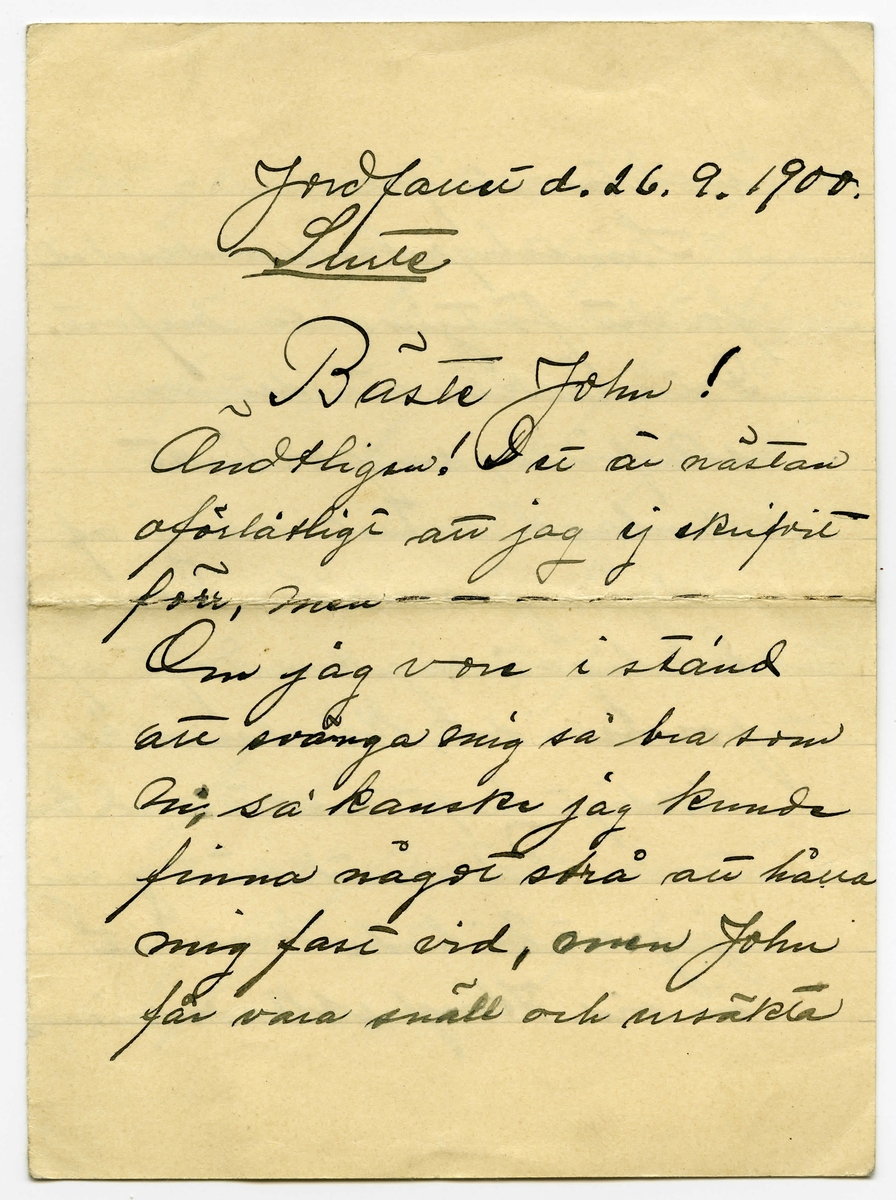 Jordfauet d. 26. 9. 1900.
Slute
Bäste John!
Ändtligen! Det är nästan
oförlåtligt att jag ej skrifvit
förr, men - - - - - - -
Om jag vore i stånd
att svänga mig så bra som
Ni, så kanske jag kunde
finna något strå att hålla
mig fast vid, men John
får vara snäll och ursäkta